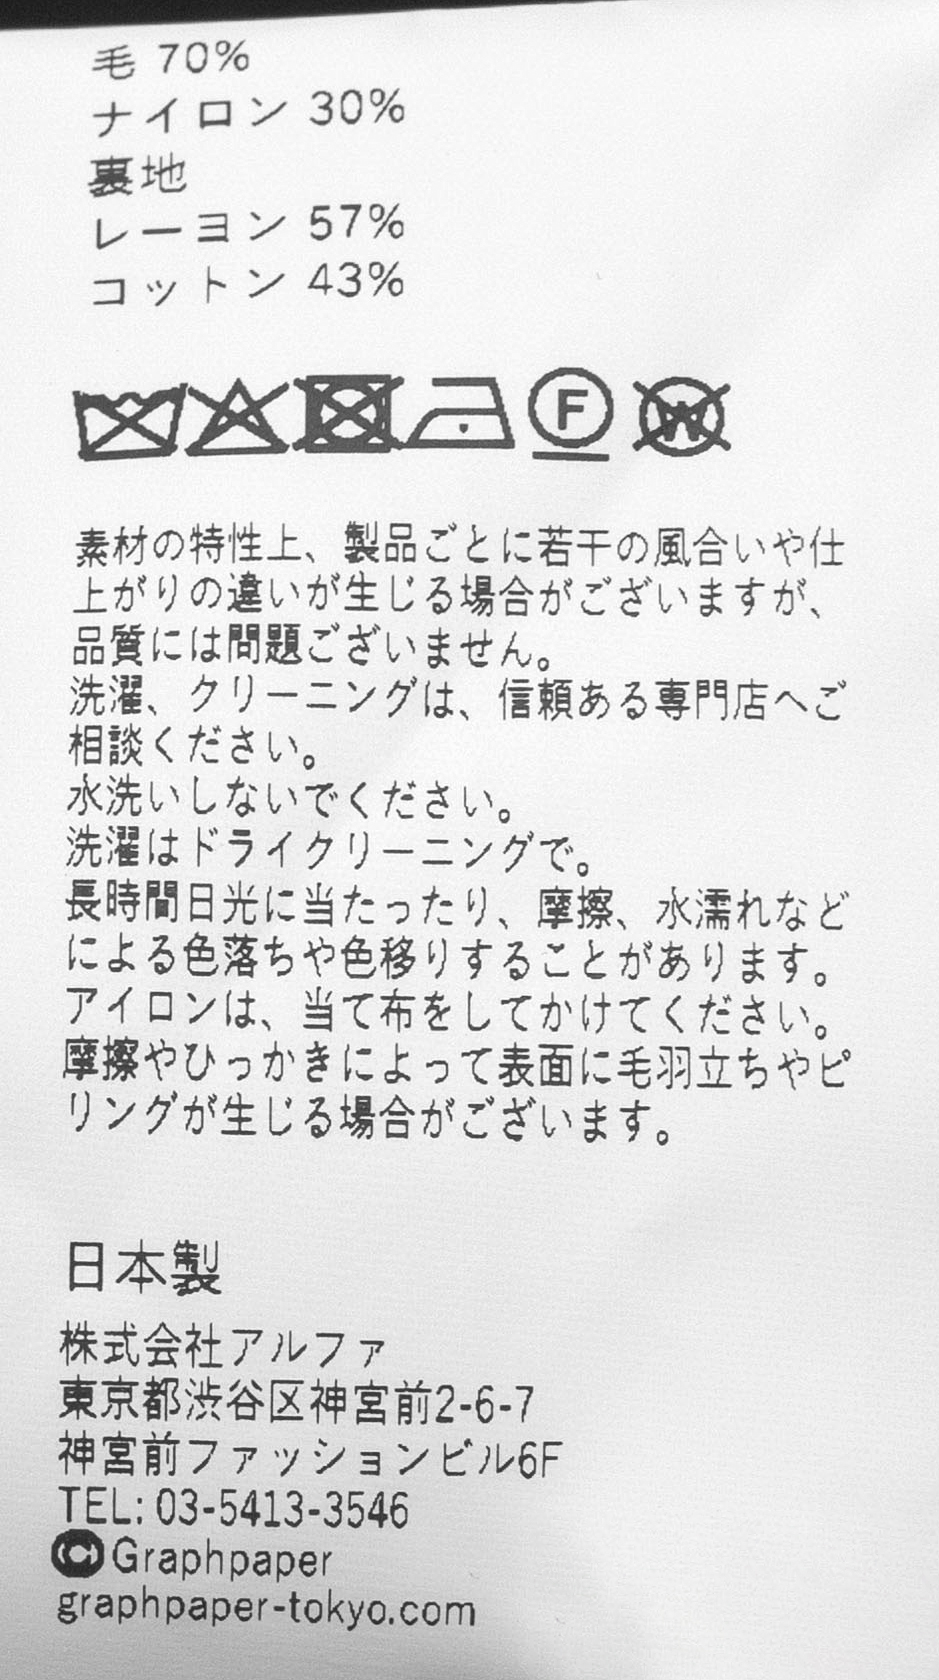 毛 70%
ナイロン 30%
裏地
レーヨン 57%
コットン 43%
F W
素材の特性上、製品ごとに若干の風合いや仕
上がりの違いが生じる場合がございますが、
品質には問題ございません。
洗濯、クリーニングは、信頼ある専門店へご
相談ください。
水洗いしないでください。
洗濯はドライクリーニングで。
長時間日光に当たったり、摩擦、水濡れなど
による色落ちや色移りすることがあります。
アイロンは、当て布をしてかけてください。
摩擦やひっかきによって表面に毛羽立ちやピ
リングが生じる場合がございます。
日本製
株式会社アルファ
東京都渋谷区神宮前2-6-7
神宮前ファッションビル6F
TEL: 03-5413-3546
©Graphpaper
graphpaper-tokyo.com